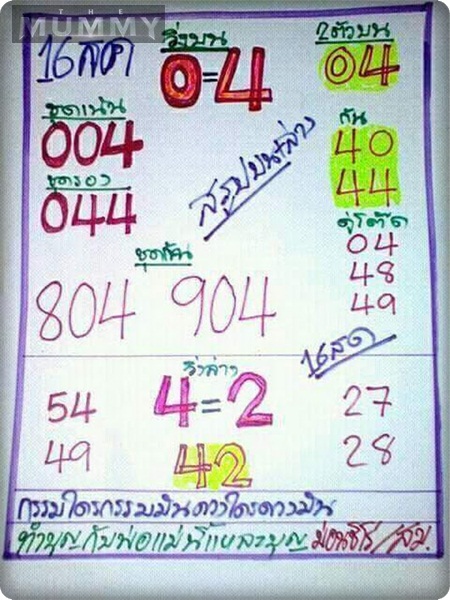 THE
MUMMY
16 สค วิ่งบน 2ตัวบน
0=4 04
ชุดเน้น กัน
004 40
ชุดรอง 44
044 สรุปบน+ล่าง
คู่โต๊ด
04
ชุดกัน 48
804 904 49
วิ่งล่าง 16 สค
54 4=2 27
49 42 28
กรรมใครกรรมมันดวงใครดวงมัน
ทำบุญกับพ่อแม่นี่แหละบุญ